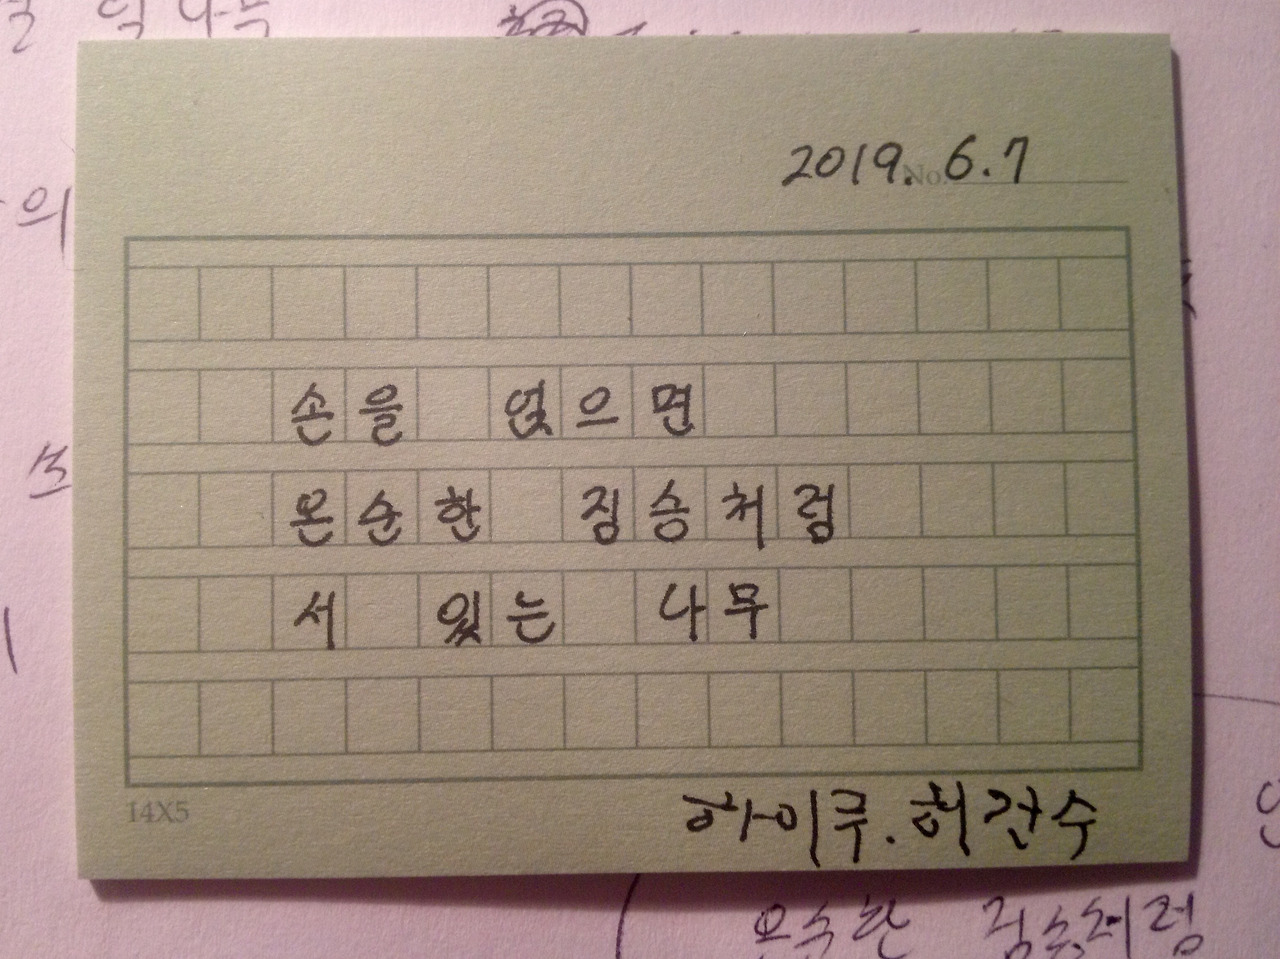 2019. 6. 7
No.
손을 얹으면
온순한 짐승처럼
서 있는 나무
14X5
하이쿠. 허건수
온순한 짐승처럼